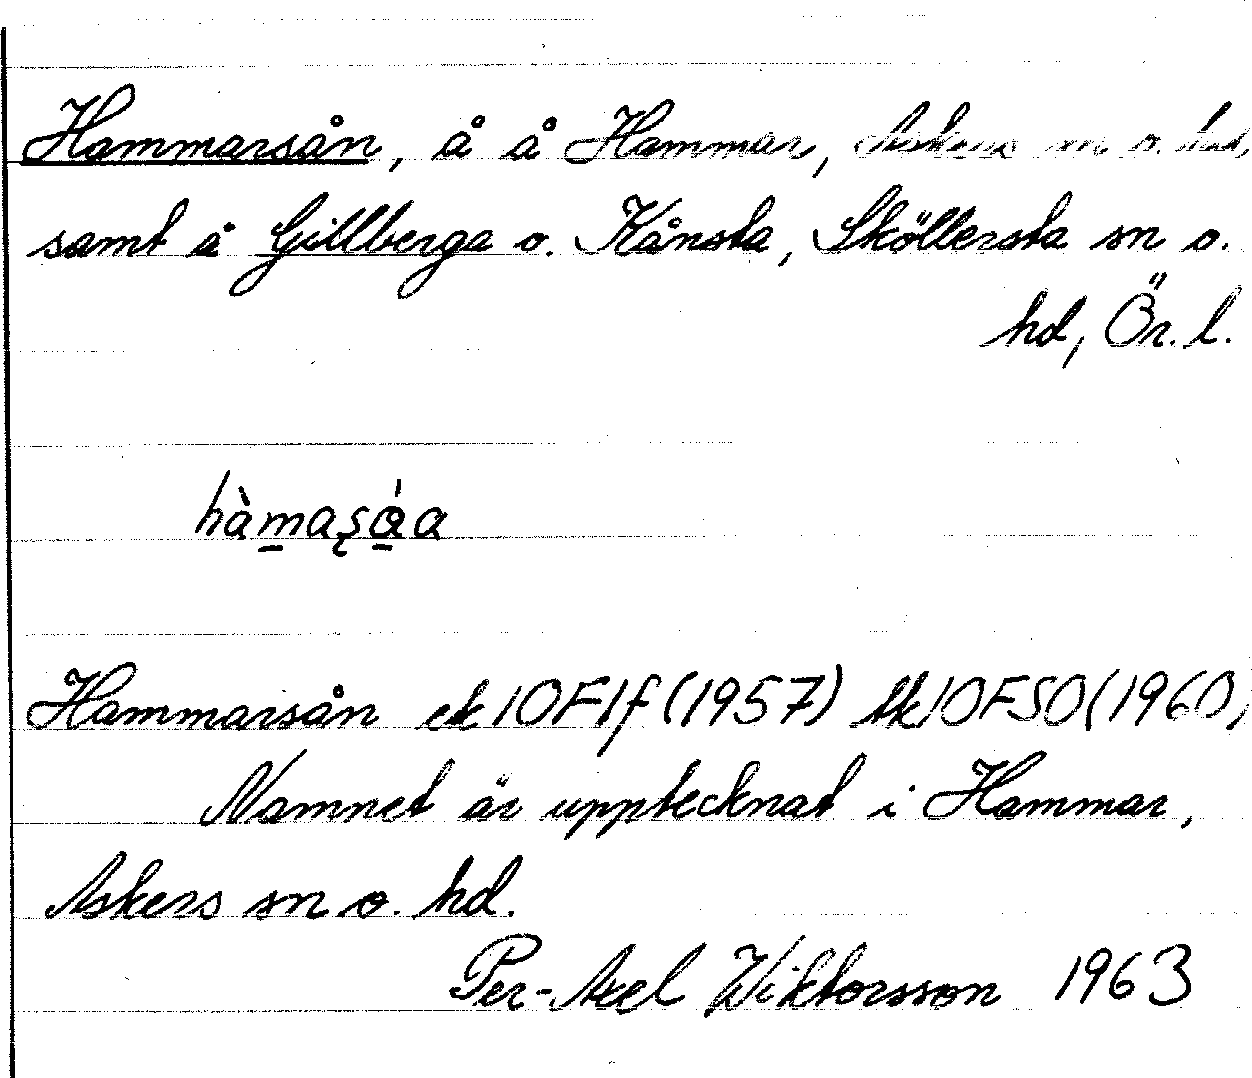 Hammarsån, å å Hammar, Askers sn o. hd,
samt å Gillberga o. Kånsta, Sköllersta sn o.
hd, Ör. l.
hàmaʂɑ̀́a
Hammarsån ek 10F1f (1957) tk 10FSO (1960)
Namnet är upptecknat i Hammar,
Askers sn o. hd.
Per-Axel Wiktorsson 1963